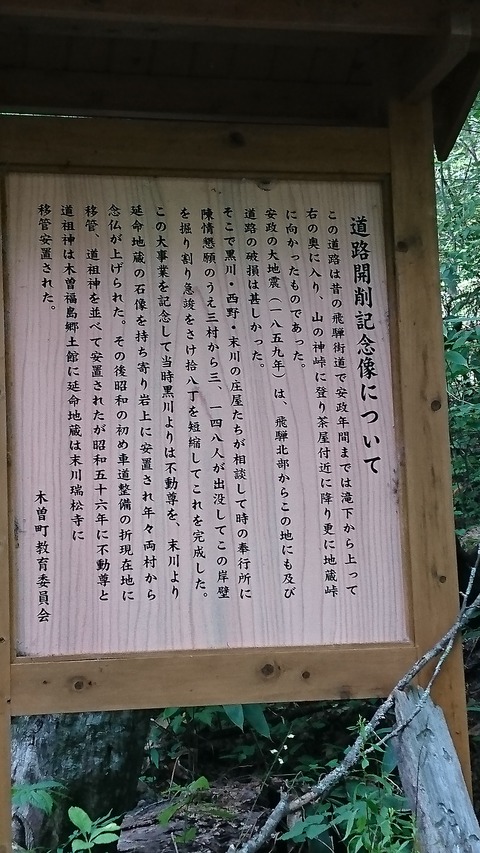 道路開削記念像について
この道路は昔の飛騨街道で安政年間までは滝下から上って
右の奥に入り、山の神峠に登り茶屋付近に降り更に地蔵峠
に向かったものであった。
安政の大地震（一八五九年）は、飛騨北部からこの地にも及び
道路の破損は甚しかった。
そこで黒川・西野・末川の庄屋たちが相談して時の奉行所に
陳情懇願のうえ三村から三、一四八人が出没してこの岸壁
を掘り割り急竣をさけ拾八丁を短縮してこれを完成した。
この大事業を記念して当時黒川よりは不動尊を、末川より
延命地蔵の石像を持ち寄り岩上に安置され年々両村から
念仏が上げられた。その後昭和の初め車道整備の折現在地に
移管、道祖神を並べて安置されたが昭和五十六年に不動尊と
道祖神は木曽福島郷土館に延命地蔵は末川瑞松寺に
移管安置された。
木曽町教育委員会